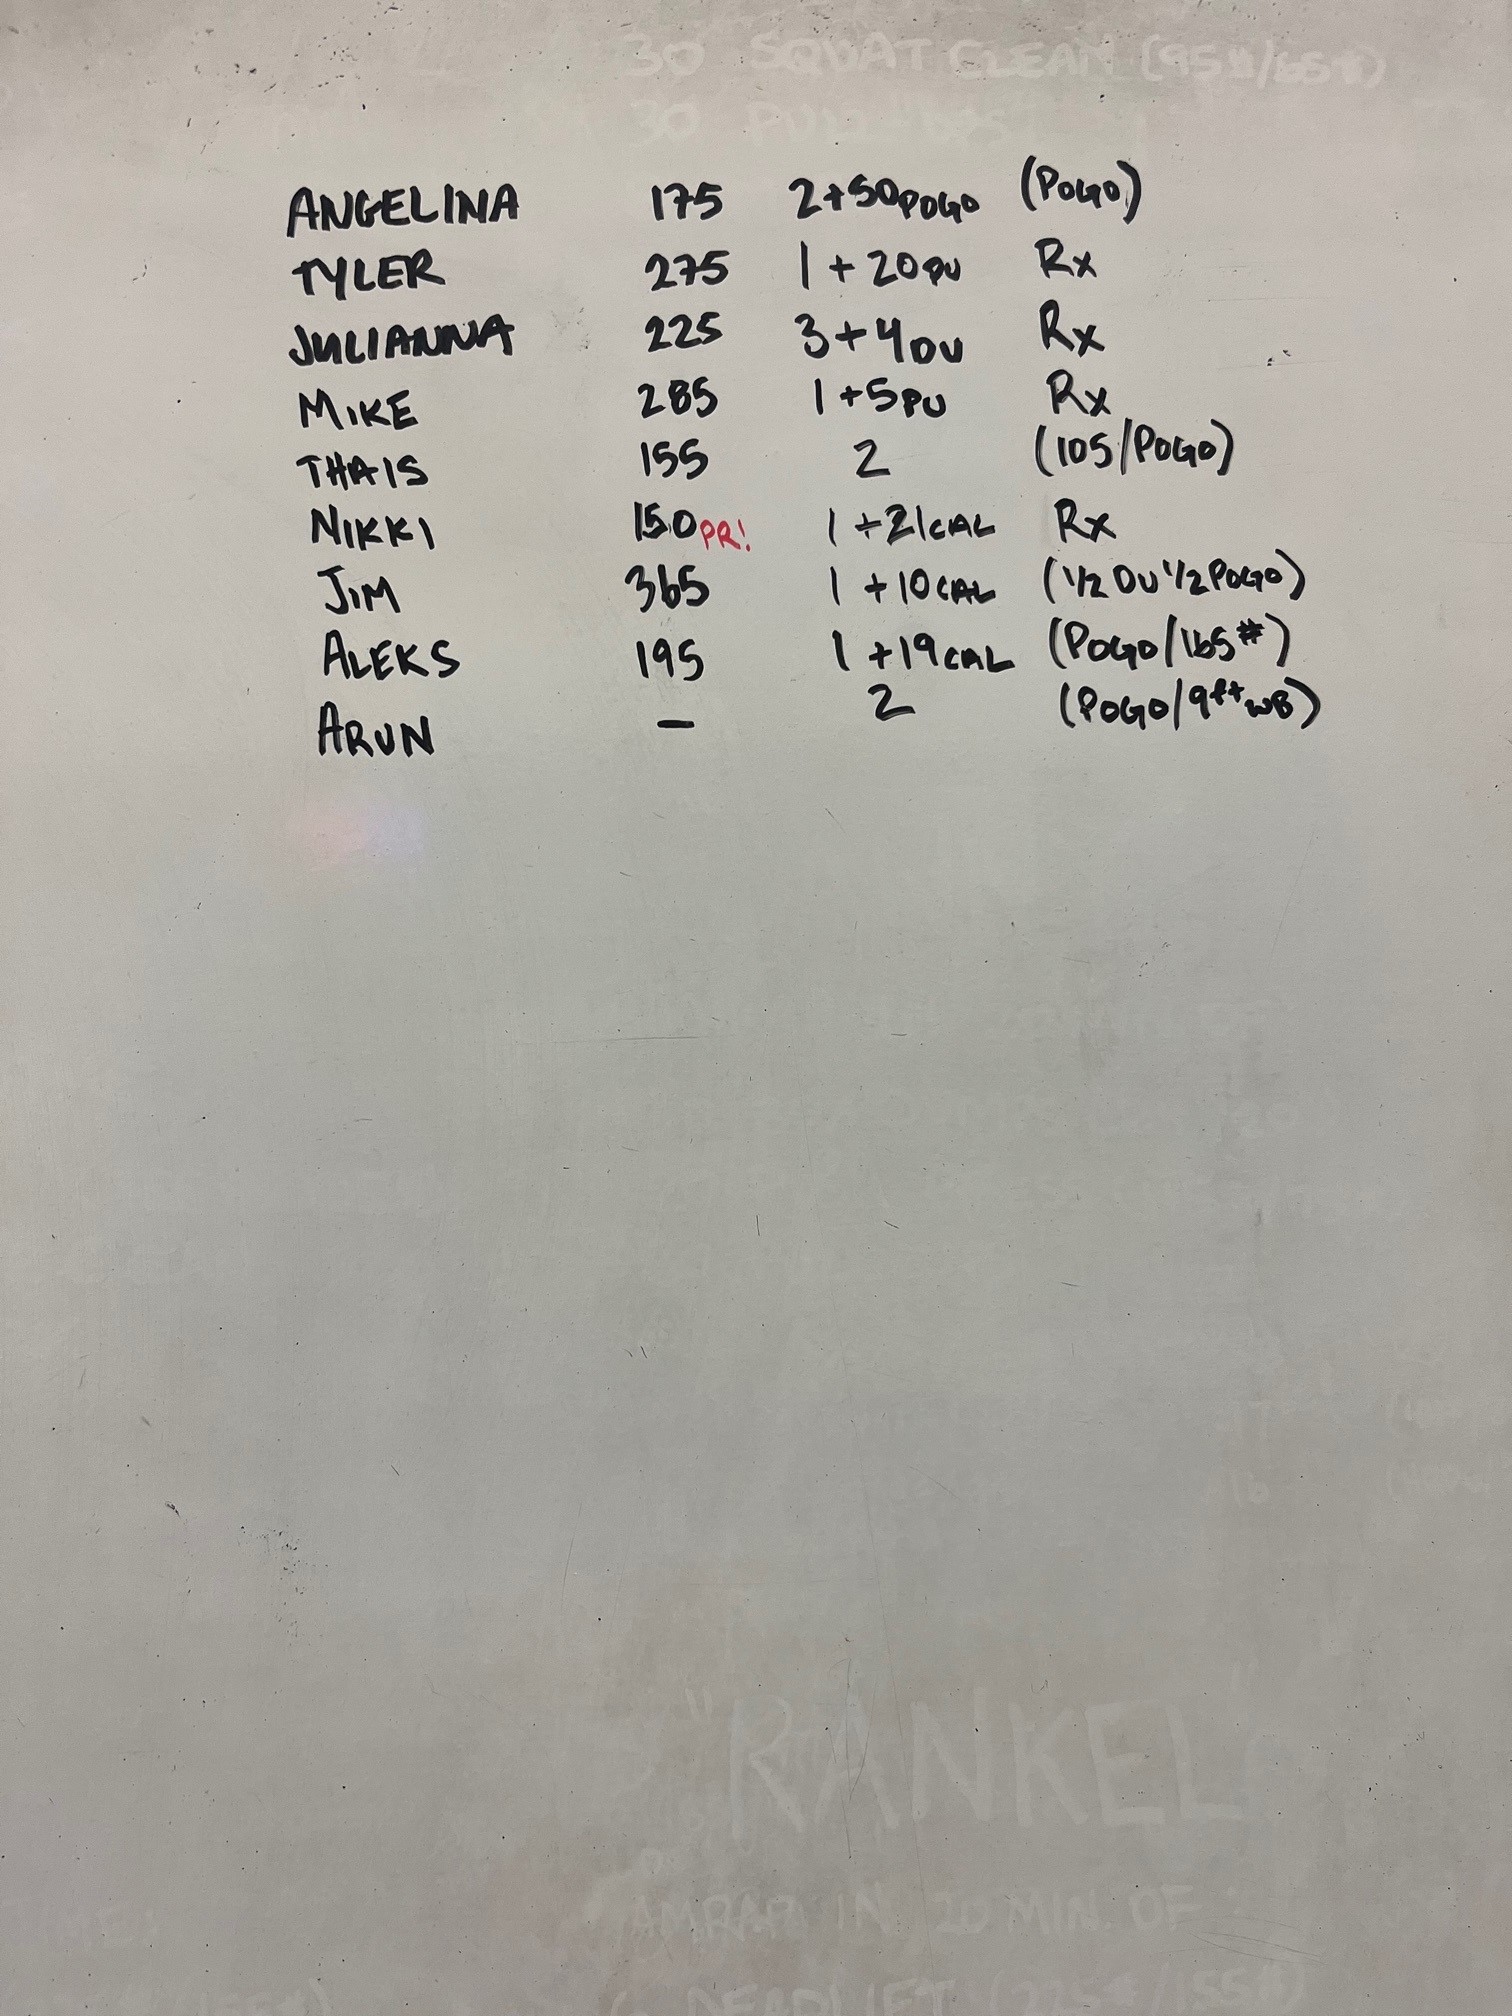 30 SQUAT CLEAN (95#/65#)
30 PULL-UPS
ANGELINA 175 2+50POGO (POGO)
TYLER 275 1+20PU Rx
JULIANNA 225 3+4DU Rx
MIKE 285 1+5PU Rx
THAIS 155 2 (105/POGO)
NIKKI 150 PR! 1+21CAL Rx
JIM 365 1+10CAL (1/2 DU 1/2 POGO)
ALEKS 195 1+19CAL (POGO/165#)
ARUN – 2 (POGO/9ft WB)
"RANKEL
AMRAP IN 20 MIN. OF:
DEADLIFT (225#/155#)